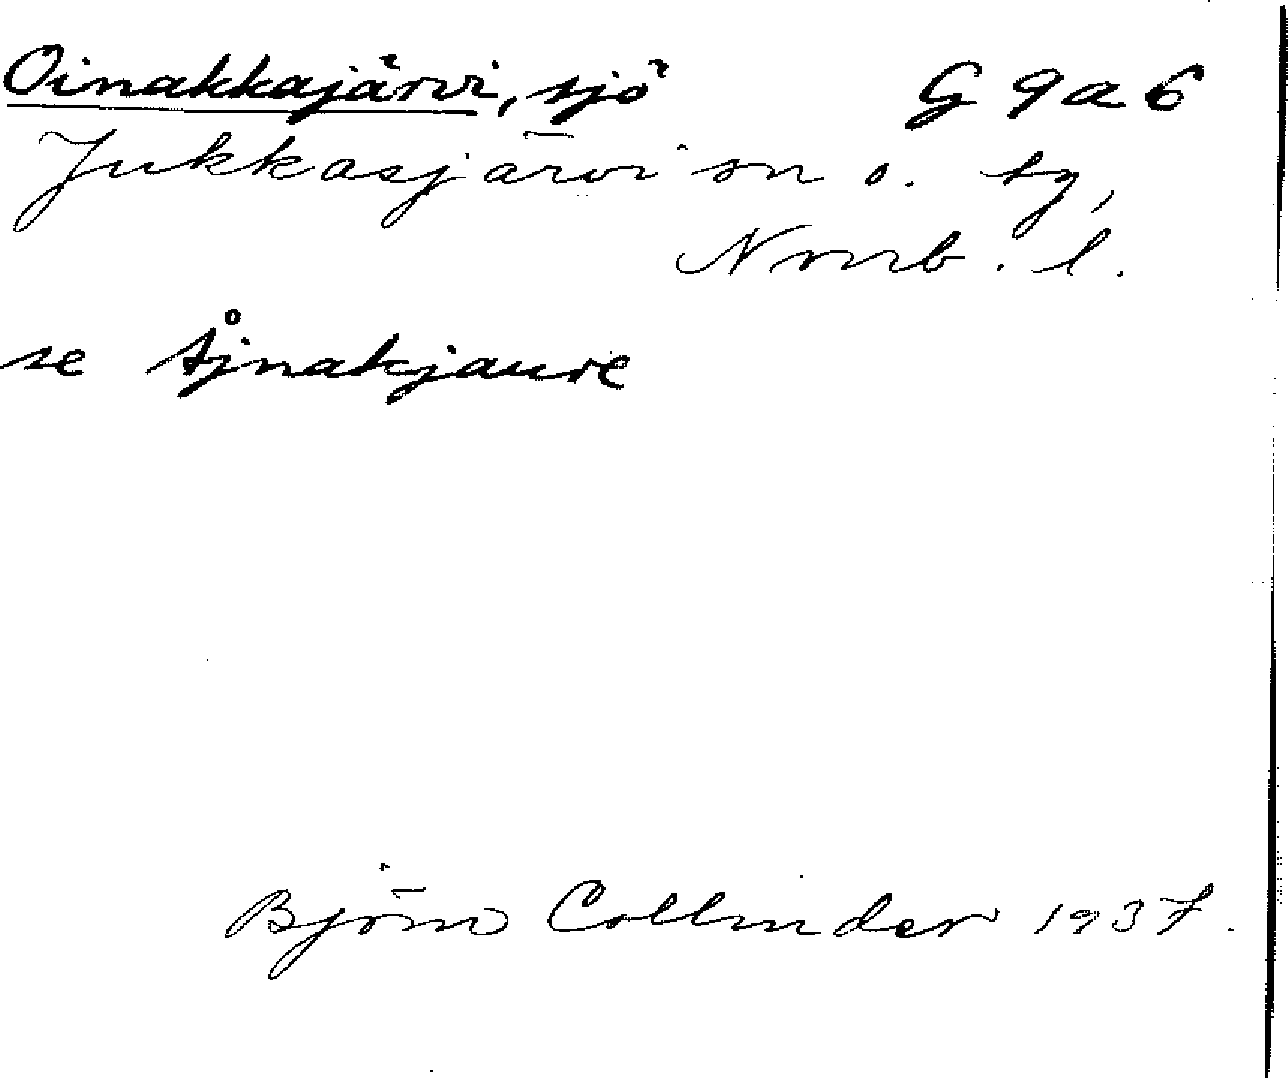 Oinakkajärvi, sjö G 9 a 6
Jukkasjärvi sn o. tg,
Norrb. l.
se Åjnakjaure
Björn Collinder 1937.